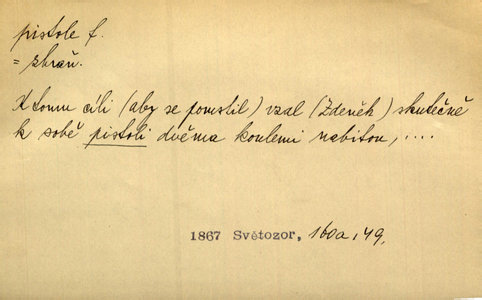 pistole f.
= zbraň.
K tomu cíli (aby se pomstil) vzal (Zdeněk) skutečně
k sobě pistoli dvěma koulemi nabitou, ....
1867 Světozor, 160a, 49.